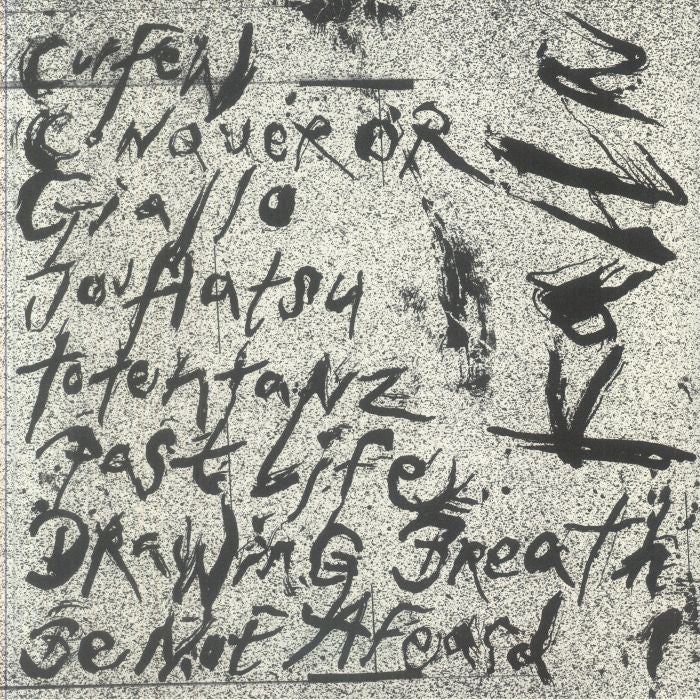 Curfew
CoNQuerOR
Giallo
JouHatsu
totentanz
Past Life
DRawinG Breath
Be Not AFeard